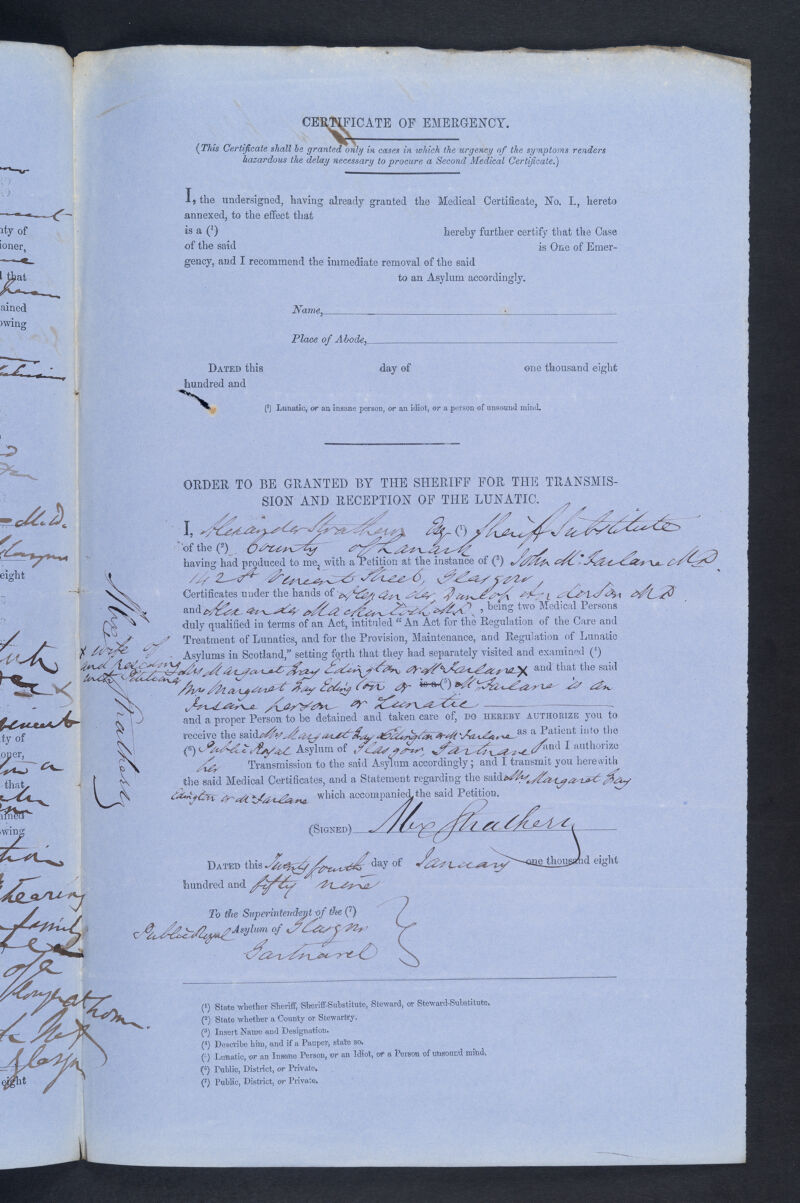 CERTIFICATE OF EMERGENCY.
(This Certificate shall be granted only in cases in which the urgency of the symptoms renders
hazardous the delay necessary to procure a Second Medical Certificate.)
I, the undersigned, having already granted the Medical Certificate, No. I., hereto
annexed, to the effect that
is a (¹) hereby further certify that the Case
of the said is One of Emer-
gency, and I recommend the immediate removal of the said
to an Asylum accordingly.
Name,
Place of Abode,
DATED this day of one thousand eight
hundred and
(¹) Lunatic, or an insane person, or an idiot, or a person of unsound mind.
ORDER TO BE GRANTED BY THE SHERIFF FOR THE TRANSMIS-
SION AND RECEPTION OF THE LUNATIC.
I, Alexander Strathern Esq. (¹) Sheriff Substitute
of the (²) County of Lanark
having had produced to me, with a Petition at the instance of (³) John McFarlane M.D.
142 St Vincent Street, Glasgow
Certificates under the hands of Alexander Dunlop Anderson M.D.
and Alexander Mackintosh M.D. , being two Medical Persons
duly qualified in terms of an Act, intituled "An Act for the Regulation of the Care and
Treatment of Lunatics, and for the Provision, Maintenance, and Regulation of Lunatic
Asylums in Scotland," setting forth that they had separately visited and examined (⁴)
Mrs Margaret Gray Edington or McFarlane x and that the said
x wife of
and residing
with Petitioner
Alex Strathern
Mrs Margaret Gray Edington or is a (⁵) McFarlane is an
Insane person or Lunatic
and a proper Person to be detained and taken care of, DO HEREBY AUTHORIZE you to
receive the said Mrs Margaret Gray Edington or McFarlane as a Patient into the
(⁶) Public Royal Asylum of Glasgow, Gartnavel and I authorize
her Transmission to the said Asylum accordingly; and I transmit you herewith
the said Medical Certificates, and a Statement regarding the said Mrs Margaret Gray
Edington or McFarlane which accompanied the said Petition.
(SIGNED) Alex Strathern
DATED this Twenty fourth day of January one thousand eight
hundred and fifty nine
To the Superintendent of the (⁷)
Public Royal Asylum of Glasgow
Gartnavel
(¹) State whether Sheriff, Sheriff-Substitute, Steward, or Steward-Substitute.
(²) State whether a County or Stewartry.
(³) Insert Name and Designation.
(⁴) Describe him, and if a Pauper, state so.
(⁵) Lunatic, or an Insane Person, or an Idiot, or a Person of unsound mind.
(⁶) Public, District, or Private.
(⁷) Public, District, or Private.